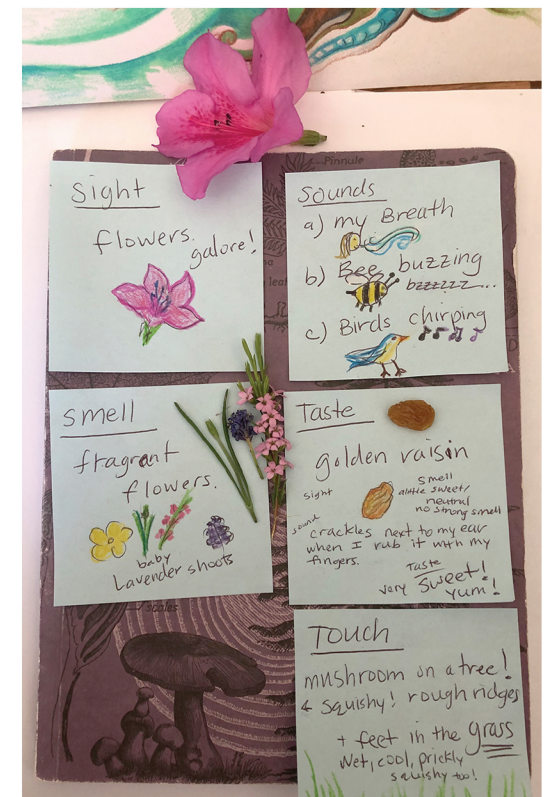 Pinnule
Sight
flowers
galore!
Sounds
a) my Breath
b) Bee buzzing
bzzzzzz...
c) Birds chirping
smell
fragrant
flowers.
baby
Lavender shoots
Taste
golden raisin
sight
smell
a little sweet/
neutral
no strong smell
sound
crackles next to my ear
when I rub it with my
fingers.
Taste
very sweet!
yum!
scales
Touch
mushroom on a tree!
squishy! rough ridges
+ feet in the grass
Wet, cool, prickly
squishy too!